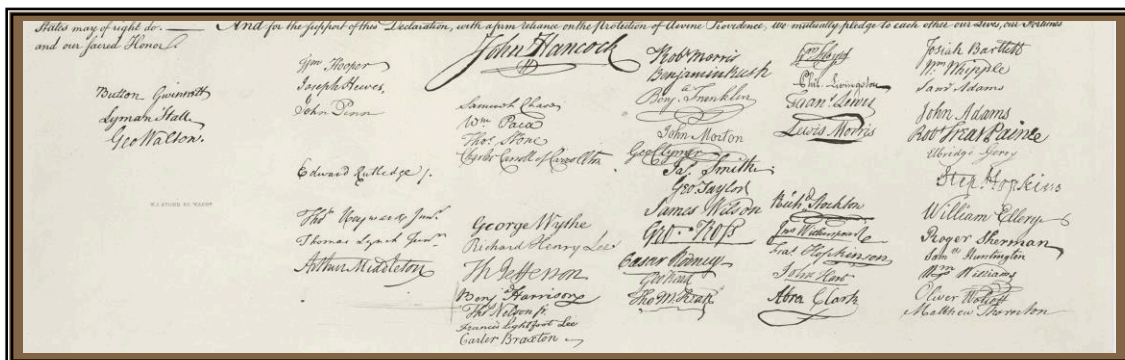 States may of right do. — And for the support of this Declaration, with a firm reliance on the Protection of divine Providence, we mutually pledge to each other our Lives, our Fortunes
and our sacred Honor
Button Gwinnett
Lyman Hall
Geo Walton.
Wm Hooper
Joseph Hewes,
John Penn
Edward Rutledge /.
Thos Heyward Junr.
Thomas Lynch Junr.
Arthur Middleton
John Hancock
Samuel Chase
Wm Paca
Thos Stone
Charles Carroll of Carrollton
George Wythe
Richard Henry Lee
Th Jefferson
Benj Harrison
Thos Nelson jr.
Francis Lightfoot Lee
Carter Braxton
Robt Morris
Benjamin Rush
Benj. Franklin
John Morton
Geo Clymer
Jas. Smith
Geo. Taylor
James Wilson
Geo. Ross
Caesar Rodney
Geo Read
Tho M:Kean
Phil. Livingston
Frans. Lewis
Lewis Morris
Richd. Stockton
Jno Witherspoon
Fras. Hopkinson
John Hart
Abra Clark
Josiah Bartlett
Wm Whipple
Saml Adams
John Adams
Robt Treat Paine
Elbridge Gerry
Step. Hopkins
William Ellery
Roger Sherman
Saml Huntington
Wm Williams
Oliver Wolcott
Matthew Thornton